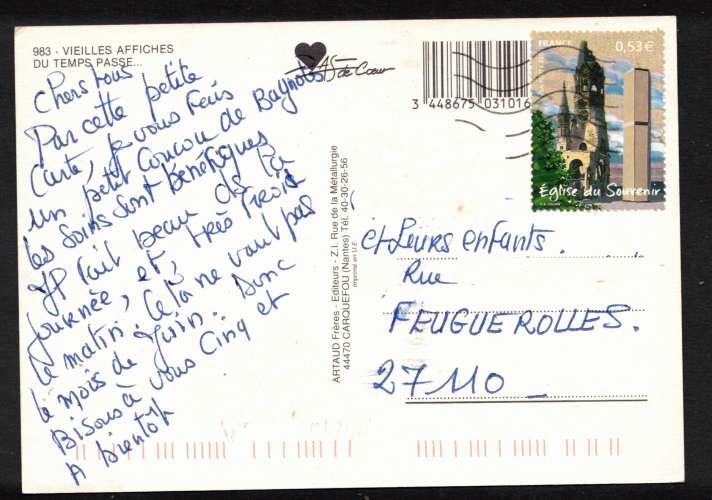 983 - VIEILLES AFFICHES
DU TEMPS PASSE...
Chers tous
Par cette petite
Carte, je vous fais
un petit Coucou de Bagnols
les Soins sont bénéfiques
Il fait beau de la
Journée, et, très froid
le matin. Cela ne vaut pas
le mois de Juin. Donc
Bisous à vous Cinq et
A bientot
AS
de Cœur
3 448675 031016
FRANCE
0,53 €
Église du Souvenir
ARTAUD Frères - Editeurs - Z.I. Rue de la Métallurgie
44470 CARQUEFOU (Nantes) Tél. 40-30-26-56
Imprimé en U.E.
et Leurs enfants.
Rue
FEUGUEROLLES.
27110